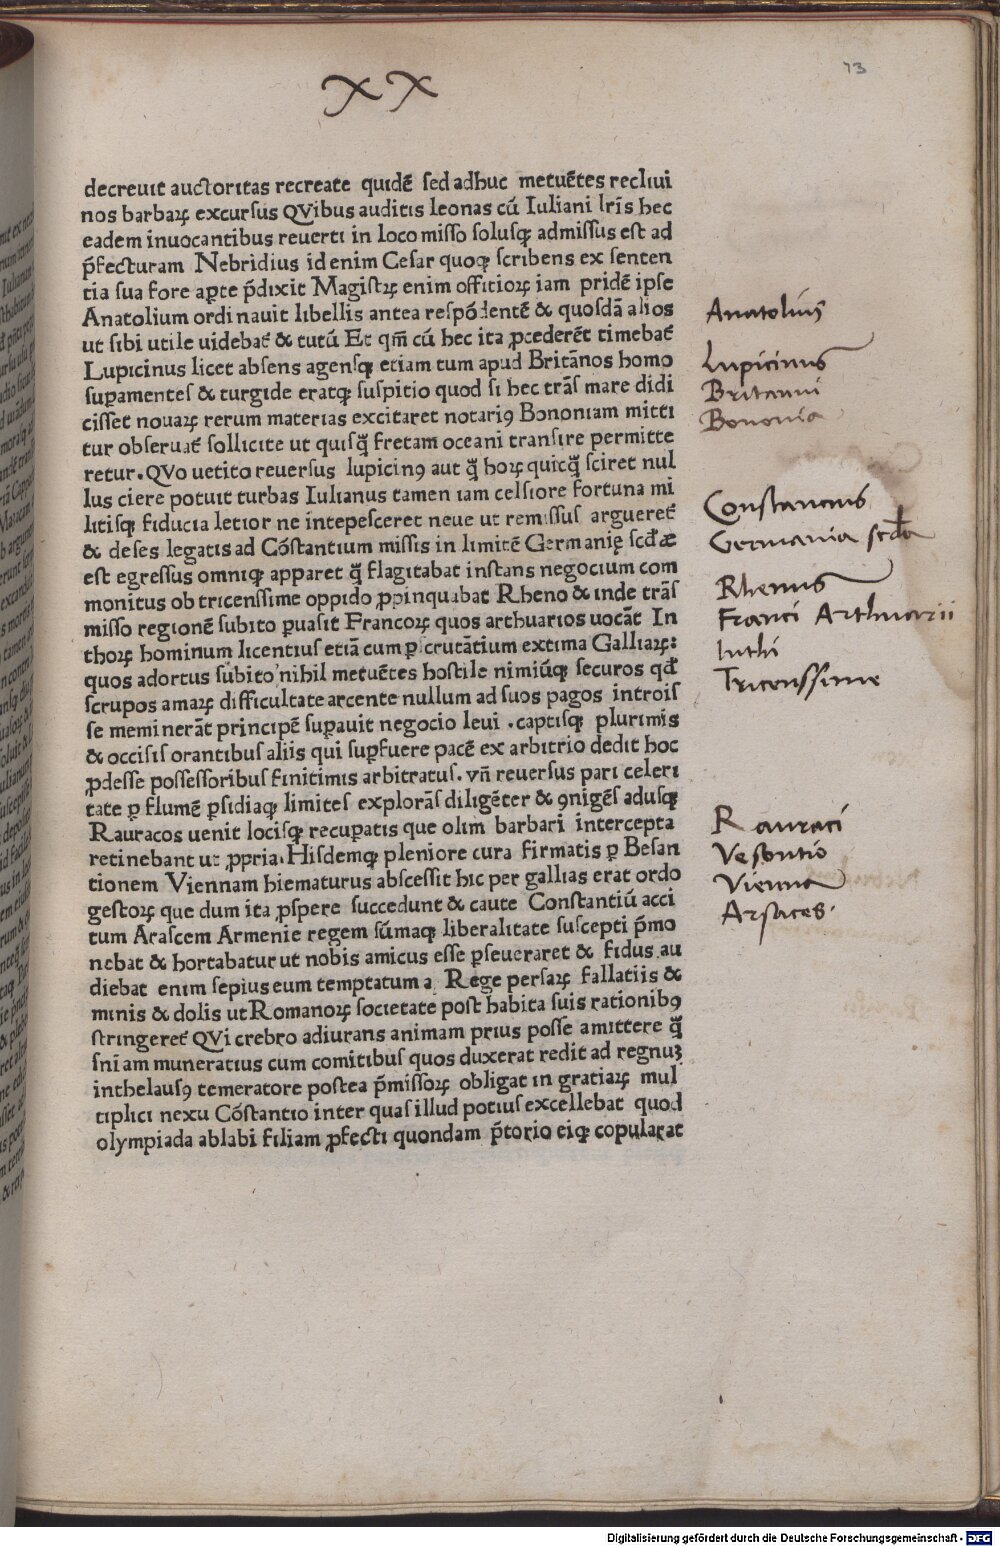 XX
73
decreuit auctoritas recreate quidē sed adhuc metuētes recliui
nos barbaꝝ excursus QVibus auditis leonas cū Iuliani lr̄is hec
eadem inuocantibus reuerti in loco misso solusqꝫ admissus est ad
p̄fecturam Nebridius id enim Cesar quoqꝫ scribens ex senten
tia sua fore aꝑte p̄dixit Magistꝝ enim offitioꝝ iam pridē ipse
Anatolium ordinauit libellis antea respōdentē & quosdā alios
ut sibi utile uidebat̄ & tutū Et qm̄ cū hec ita ꝓcederēt timebat̄
Lupicinus licet absens agensqꝫ etiam tum apud Britānos homo
suꝑamentes & turgide eratqꝫ suspitio quod si hec trās mare didi
cisset nouaꝝ rerum materias excitaret notariꝯ Bononiam mitti
tur obseruat̄ sollicite ut quisq̄ fretam oceani transire permitte
retur. QVo uetito reuersus lupicinꝯ aut q̄ hoꝝ quicq̄ sciret nul
lus ciere potuit turbas Iulianus tamen iam celsiore fortuna mi
litisqꝫ fiducia letior ne intepesceret neue ut remissus argueret̄
& deses legatis ad Cōstantium missis in limitē Germanię scd̄æ
est egressus omniqꝫ apparet q̄ flagitabat instans negocium com
monitus ob tricenssime oppido ꝓpinquabat Rheno & inde trās
misso regionē subito ꝑuasit Francoꝝ quos arthuarios uocāt In
thoꝝ hominum licentius etiā cum ꝑcrutātium extima Galliaꝝ:
quos adortus subito nihil metuētes hostile nimiūqꝫ securos qd̄
scrupos amaꝝ difficultate arcente nullum ad suos pagos introis
se meminerāt principē suꝑauit negocio leui . captisqꝫ plurimis
& occisis orantibus aliis qui suꝑfuere pacē ex arbitrio dedit hoc
ꝓdesse possessoribus finitimis arbitratus. vn̄ reuersus pari celeri
tate ꝑ flumē ꝑsidiaqꝫ limites explorās diligēter & ꝯnigēs adusqꝫ
Rauracos uenit locisqꝫ recuꝑatis que olim barbari intercepta
retinebant ut ꝓpria. Hisdemqꝫ pleniore cura firmatis ꝑ Besan
tionem Viennam hiematurus abscessit hic per gallias erat ordo
gestoꝝ que dum ita ꝓspere succedunt & caute Constantiū acci
tum Arascem Armenie regem sūmaqꝫ liberalitate suscepti p̄mo
nebat & hortabatur ut nobis amicus esse ꝑseueraret & fidus au
diebat enim sepius eum temptatum a Rege persaꝝ fallatiis &
minis & dolis ut Romanoꝝ societate post habita suis rationibꝯ
stringeret̄ QVi crebro adiurans animam prius posse amittere q̄
sn̄iam muneratius cum comitibus quos duxerat redit ad regnuꝫ
inthelausꝯ temeratore postea p̄missoꝝ obligat in gratiaꝝ mul
tiplici nexu Cōstantio inter quas illud potius excellebat quod
olympiada ablabi filiam ꝓfecti quondam p̄torio eiqꝫ copularat
Anatolius
Lupicinus
Britanni
Bononia
Constancius
Germania scd̄a
Rhenus
Franci Arthuarii
Inthi
Tricenssime
Rauraci
Vesontio
Vienna
Arsaces.
Digitalisierung gefördert durch die Deutsche Forschungsgemeinschaft - DFG